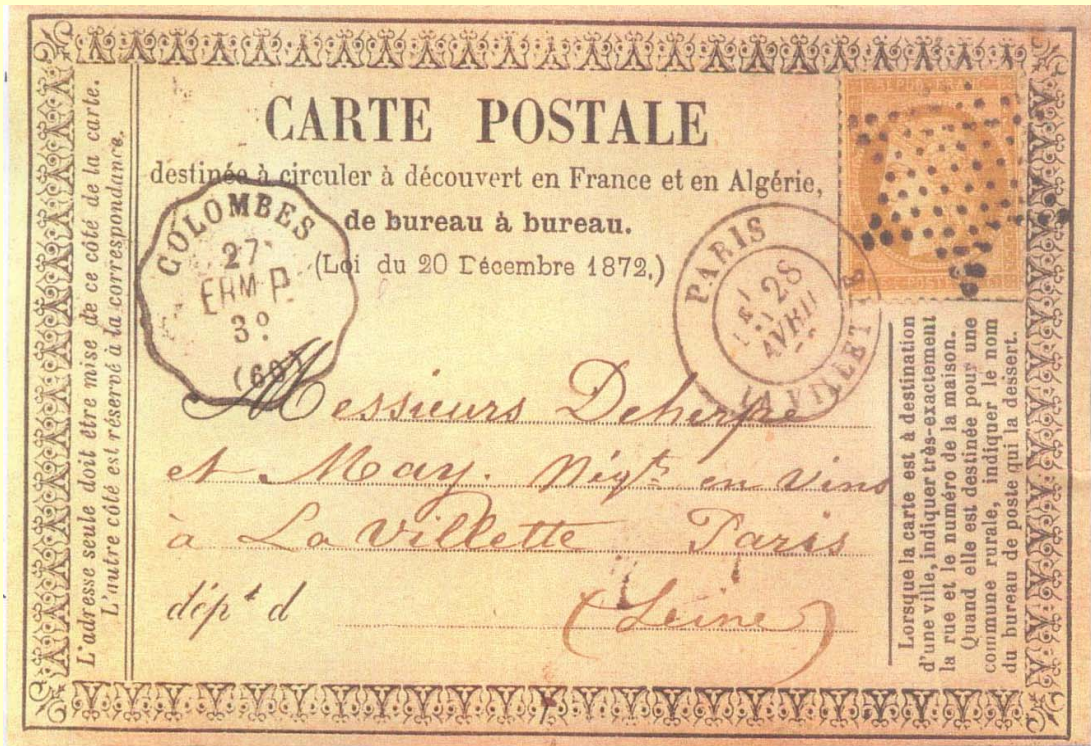 L'adresse seule doit être mise de ce côté de la carte.
L'autre côté est réservé à la correspondance.
CARTE POSTALE
destinée à circuler à découvert en France et en Algérie,
de bureau à bureau.
(Loi du 20 Décembre 1872.)
COLOMBES
27
ERM·P.
3º
(60)
PARIS
28
AVRIL
LA VILLETTE
Messieurs Deherpe
et May. Négts en vins
à La Villette Paris
dépt d (Seine)
Lorsque la carte est à destination
d'une ville, indiquer très-exactement
la rue et le numéro de la maison.
Quand elle est destinée pour une
commune rurale, indiquer le nom
du bureau de poste qui la dessert.